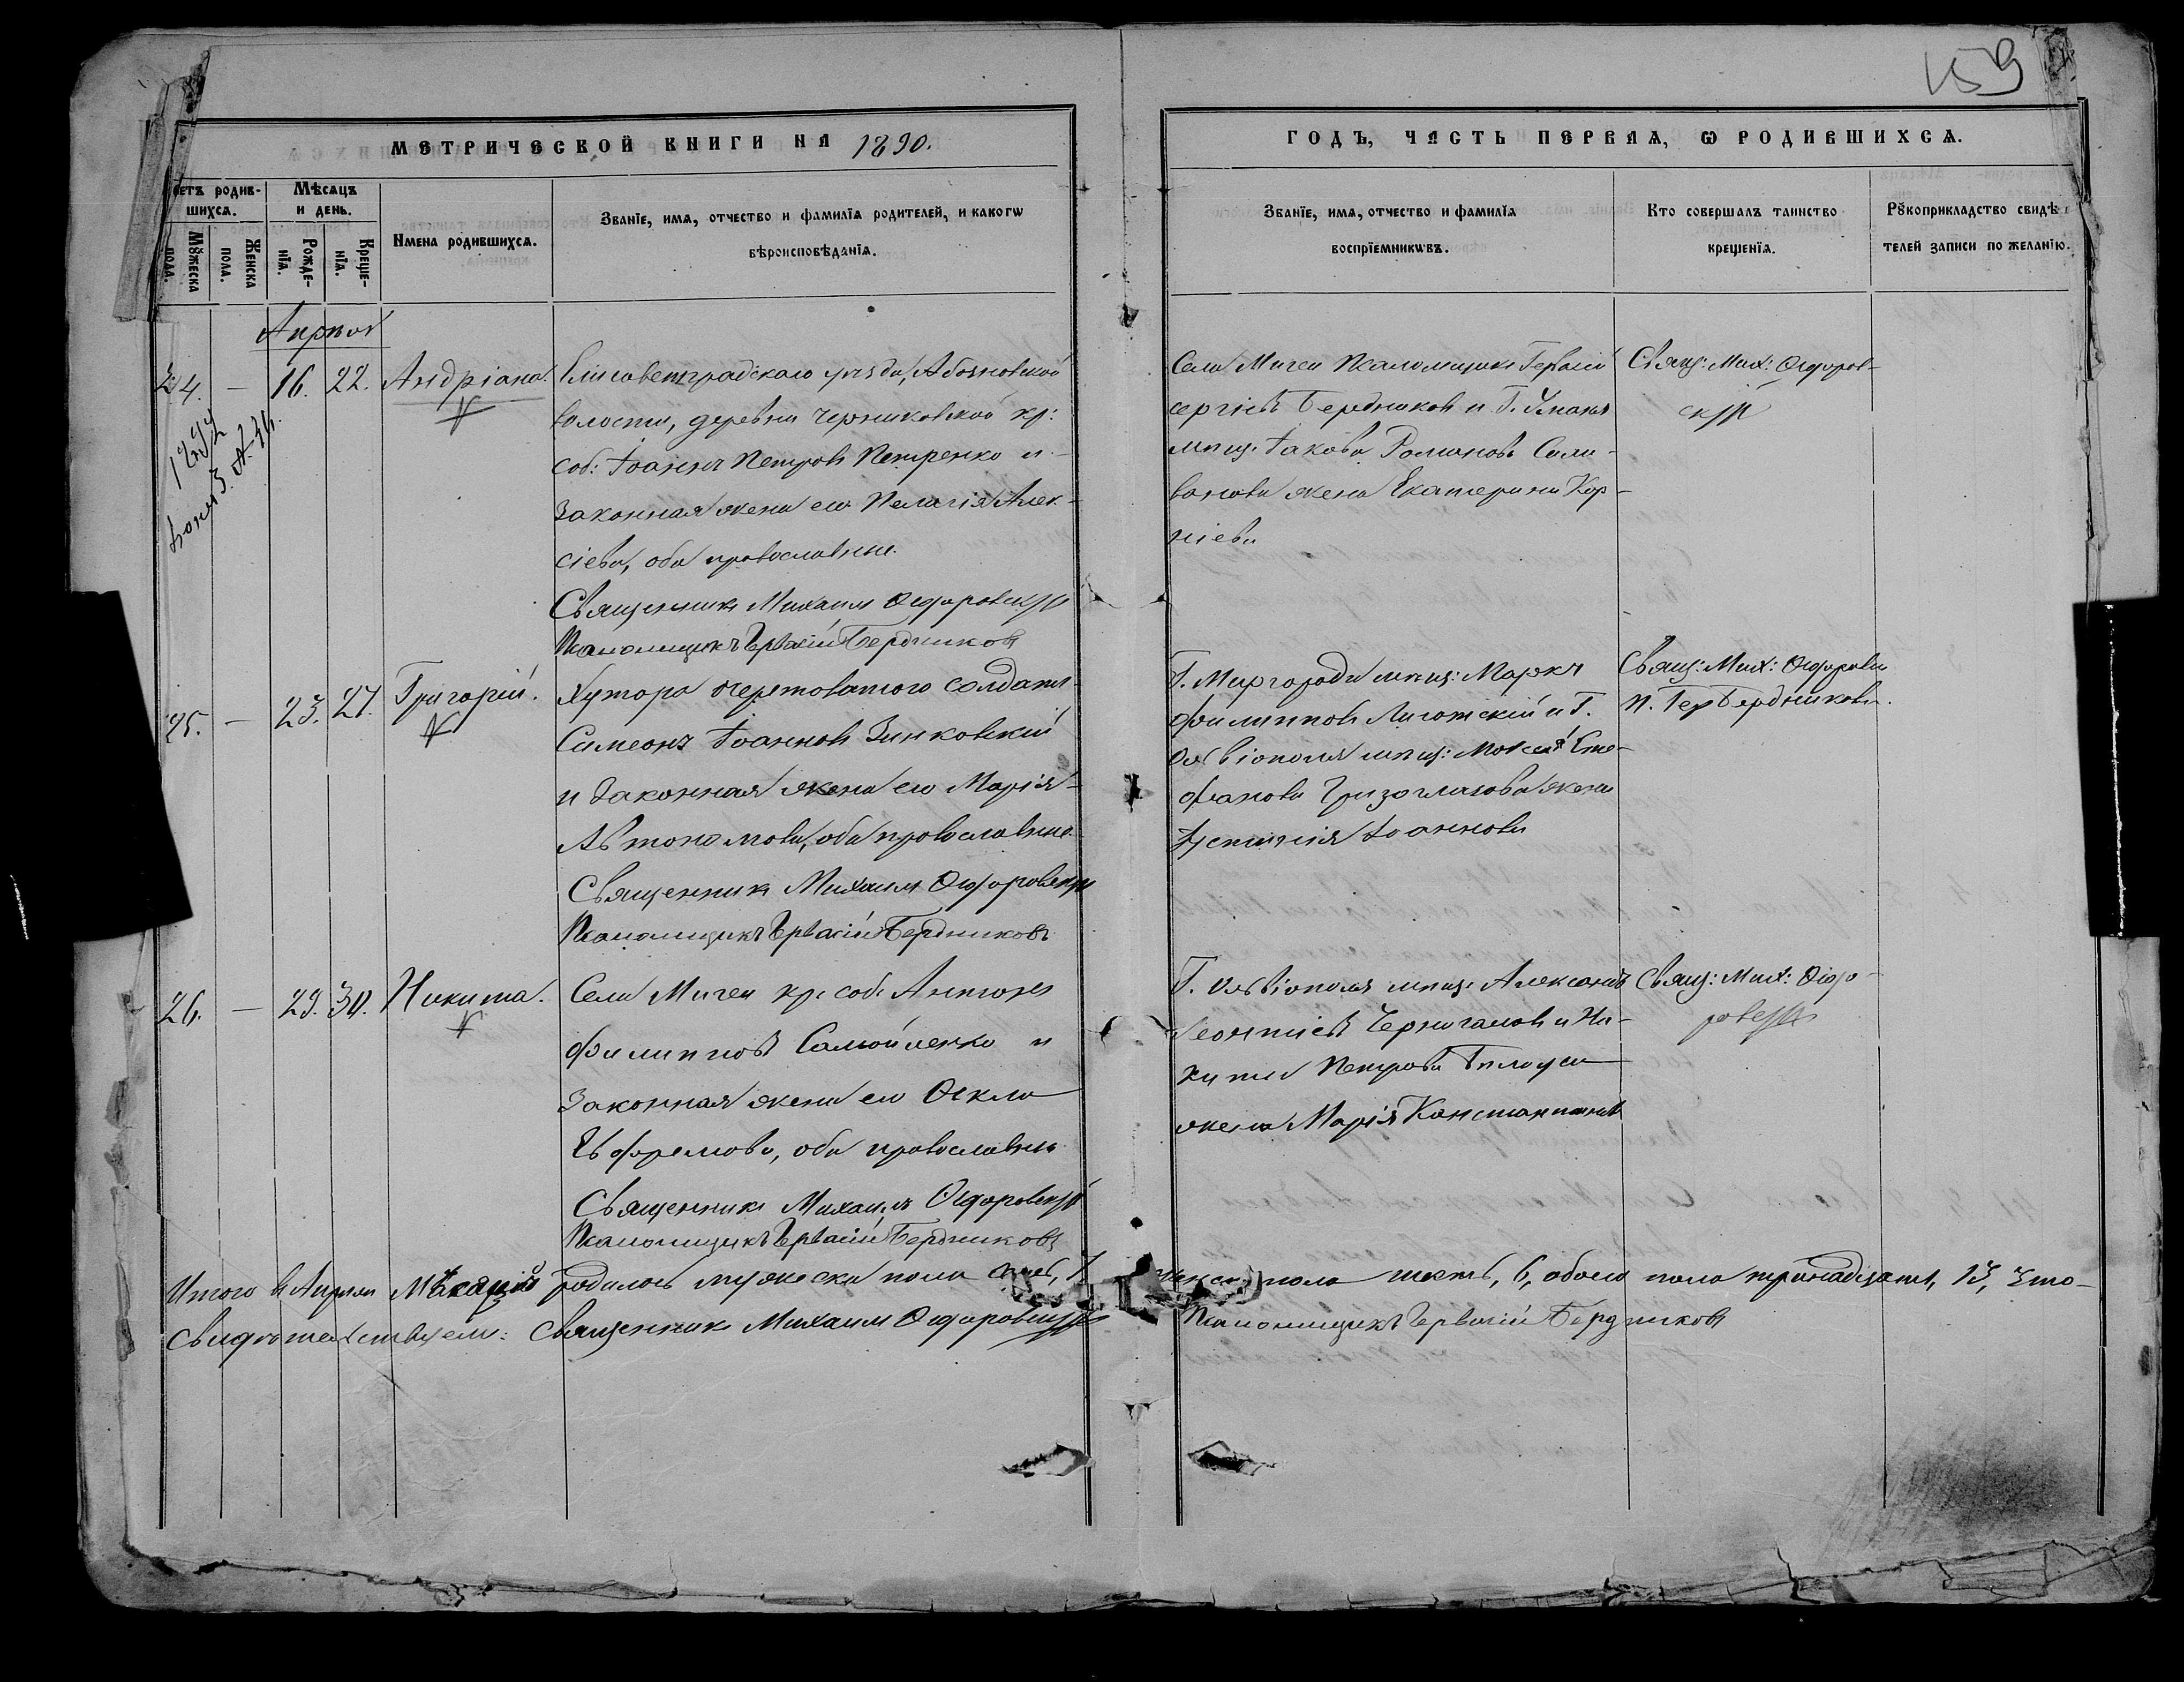 159
МЕТРИЧЕСКОЙ КНИГИ НА 1890.
ГОДЪ, ЧАСТЬ ПЕРВАЯ, Ѡ РОДИВШИХСѦ.
четъ родив-
шихсѧ.
Мѣсѧцъ
и день.
Мꙋжеска
пола.
Женска
пола.
Рожде-
нїѧ.
Креще-
нїѧ.
Имена родившихсѧ.
Званїе, имѧ, отчество и фамилїѧ родителей, и какогѡ
вѣроисповѣданїѧ.
Званїе, имѧ, отчество и фамилїѧ
воспрїемникѡвъ.
Кто совершалъ таинство
крещенїѧ.
Рꙋкоприкладство свидѣ-
телей записи по желанїю.
Апрѣль
24. — 16. 22. Андріанъ.
Елисаветградскаго уѣзда,
волости, деревни Черниковской кр:
соб: Іоаннъ Петровъ Петренко и
законная жена его Пелагія Алек-
сіева, оба православные.
Священникъ Михаилъ Ѳедоровскій
Псаломщикъ Гервасій Бердниковъ
Села Мигеи Псаломщикъ Гервасій
Сергіевъ Бердниковъ и Г. Умани
мѣщ. Іакова Романова Сели-
ванова жена Екатерина Кор-
ніева
Свящ: Мих: Ѳедоров-
скій
25. — 23. 27. Григорій.
Хутора Очертоватого солдатъ
Симеонъ Іоанновъ Зинковскій
и законная жена его Марія
Автономова, оба православные.
Священникъ Михаилъ Ѳедоровскій
Псаломщикъ Гервасій Бердниковъ
Г. Миргорода мѣщ: Маркъ
Филипповъ и Г.
Ольвіополя мѣщ: Моисея Сте-
фанова жена
Іоаннова
Свящ: Мих: Ѳедоровск
П. Гер Бердниковъ.
26. — 29. 30. Никита.
Села Мигеи кр: соб: Антоній
Филипповъ Самойленко и
законная жена его Ѳекла
Ефремова, оба православные
Священникъ Михаилъ Ѳедоровскій
Псаломщикъ Гервасій Бердниковъ
Г. Ольвіополя мѣщ: Александръ
Леонтіевъ и Ни-
киты Петрова Билоуса
жена Марія Константинова
Свящ: Мих: Ѳедо-
ровскій
Итого въ Апрѣлѣ Мѣсяцѣ родилось мужеска пола семь, 7, женска пола шесть, 6, обоего пола тринадцать, 13, Что
свидѣтельствуемъ: Священникъ Михаилъ Ѳедоровскій Псаломщикъ Гервасій Бердниковъ